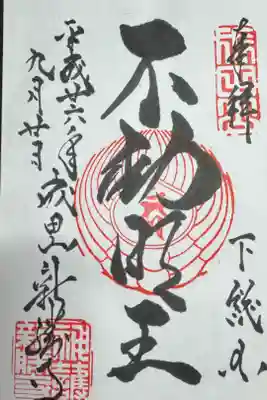 奉拝
下総国
不動明王
成田山新勝寺
平成廿六年
九月廿日